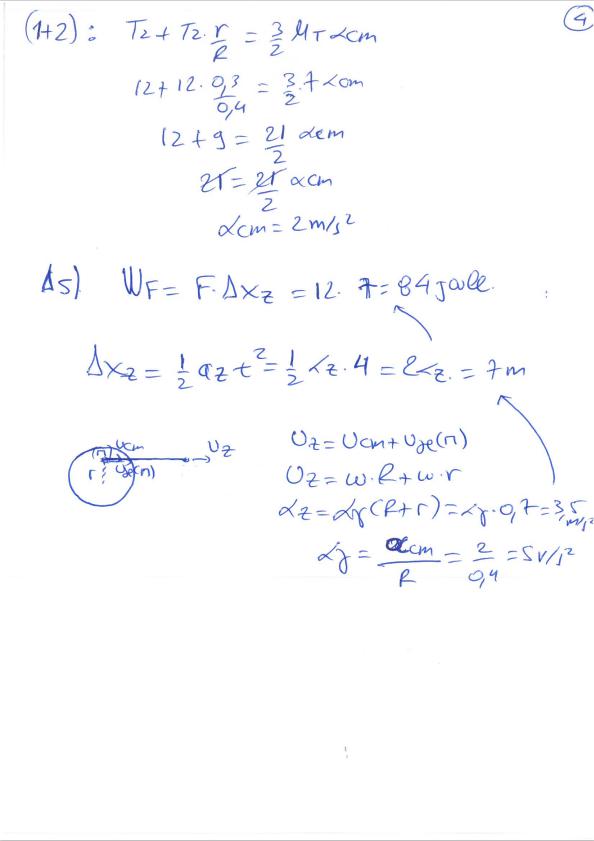 ④
(1+2): T₂ + T₂ · r/R = 3/2 M_T αcm
12 + 12 · 0,3/0,4 = 3/2 · 7 αcm
12 + 9 = 21/2 αcm
21 = 21/2 αcm
αcm = 2 m/s²
Δ5) W_F = F · Δx_z = 12 · 7 = 84 joule.
Δx_z = 1/2 a_z t² = 1/2 α_z · 4 = 2α_z. = 7 m
(π) υcm
r υγρ(π) υz
υz = υcm + υγρ(π)
υz = ω · R + ω · r
αz = αγ(R+r) = αγ · 0,7 = 3,5 m/s²
αγ = αcm/R = 2/0,4 = 5 r/s²